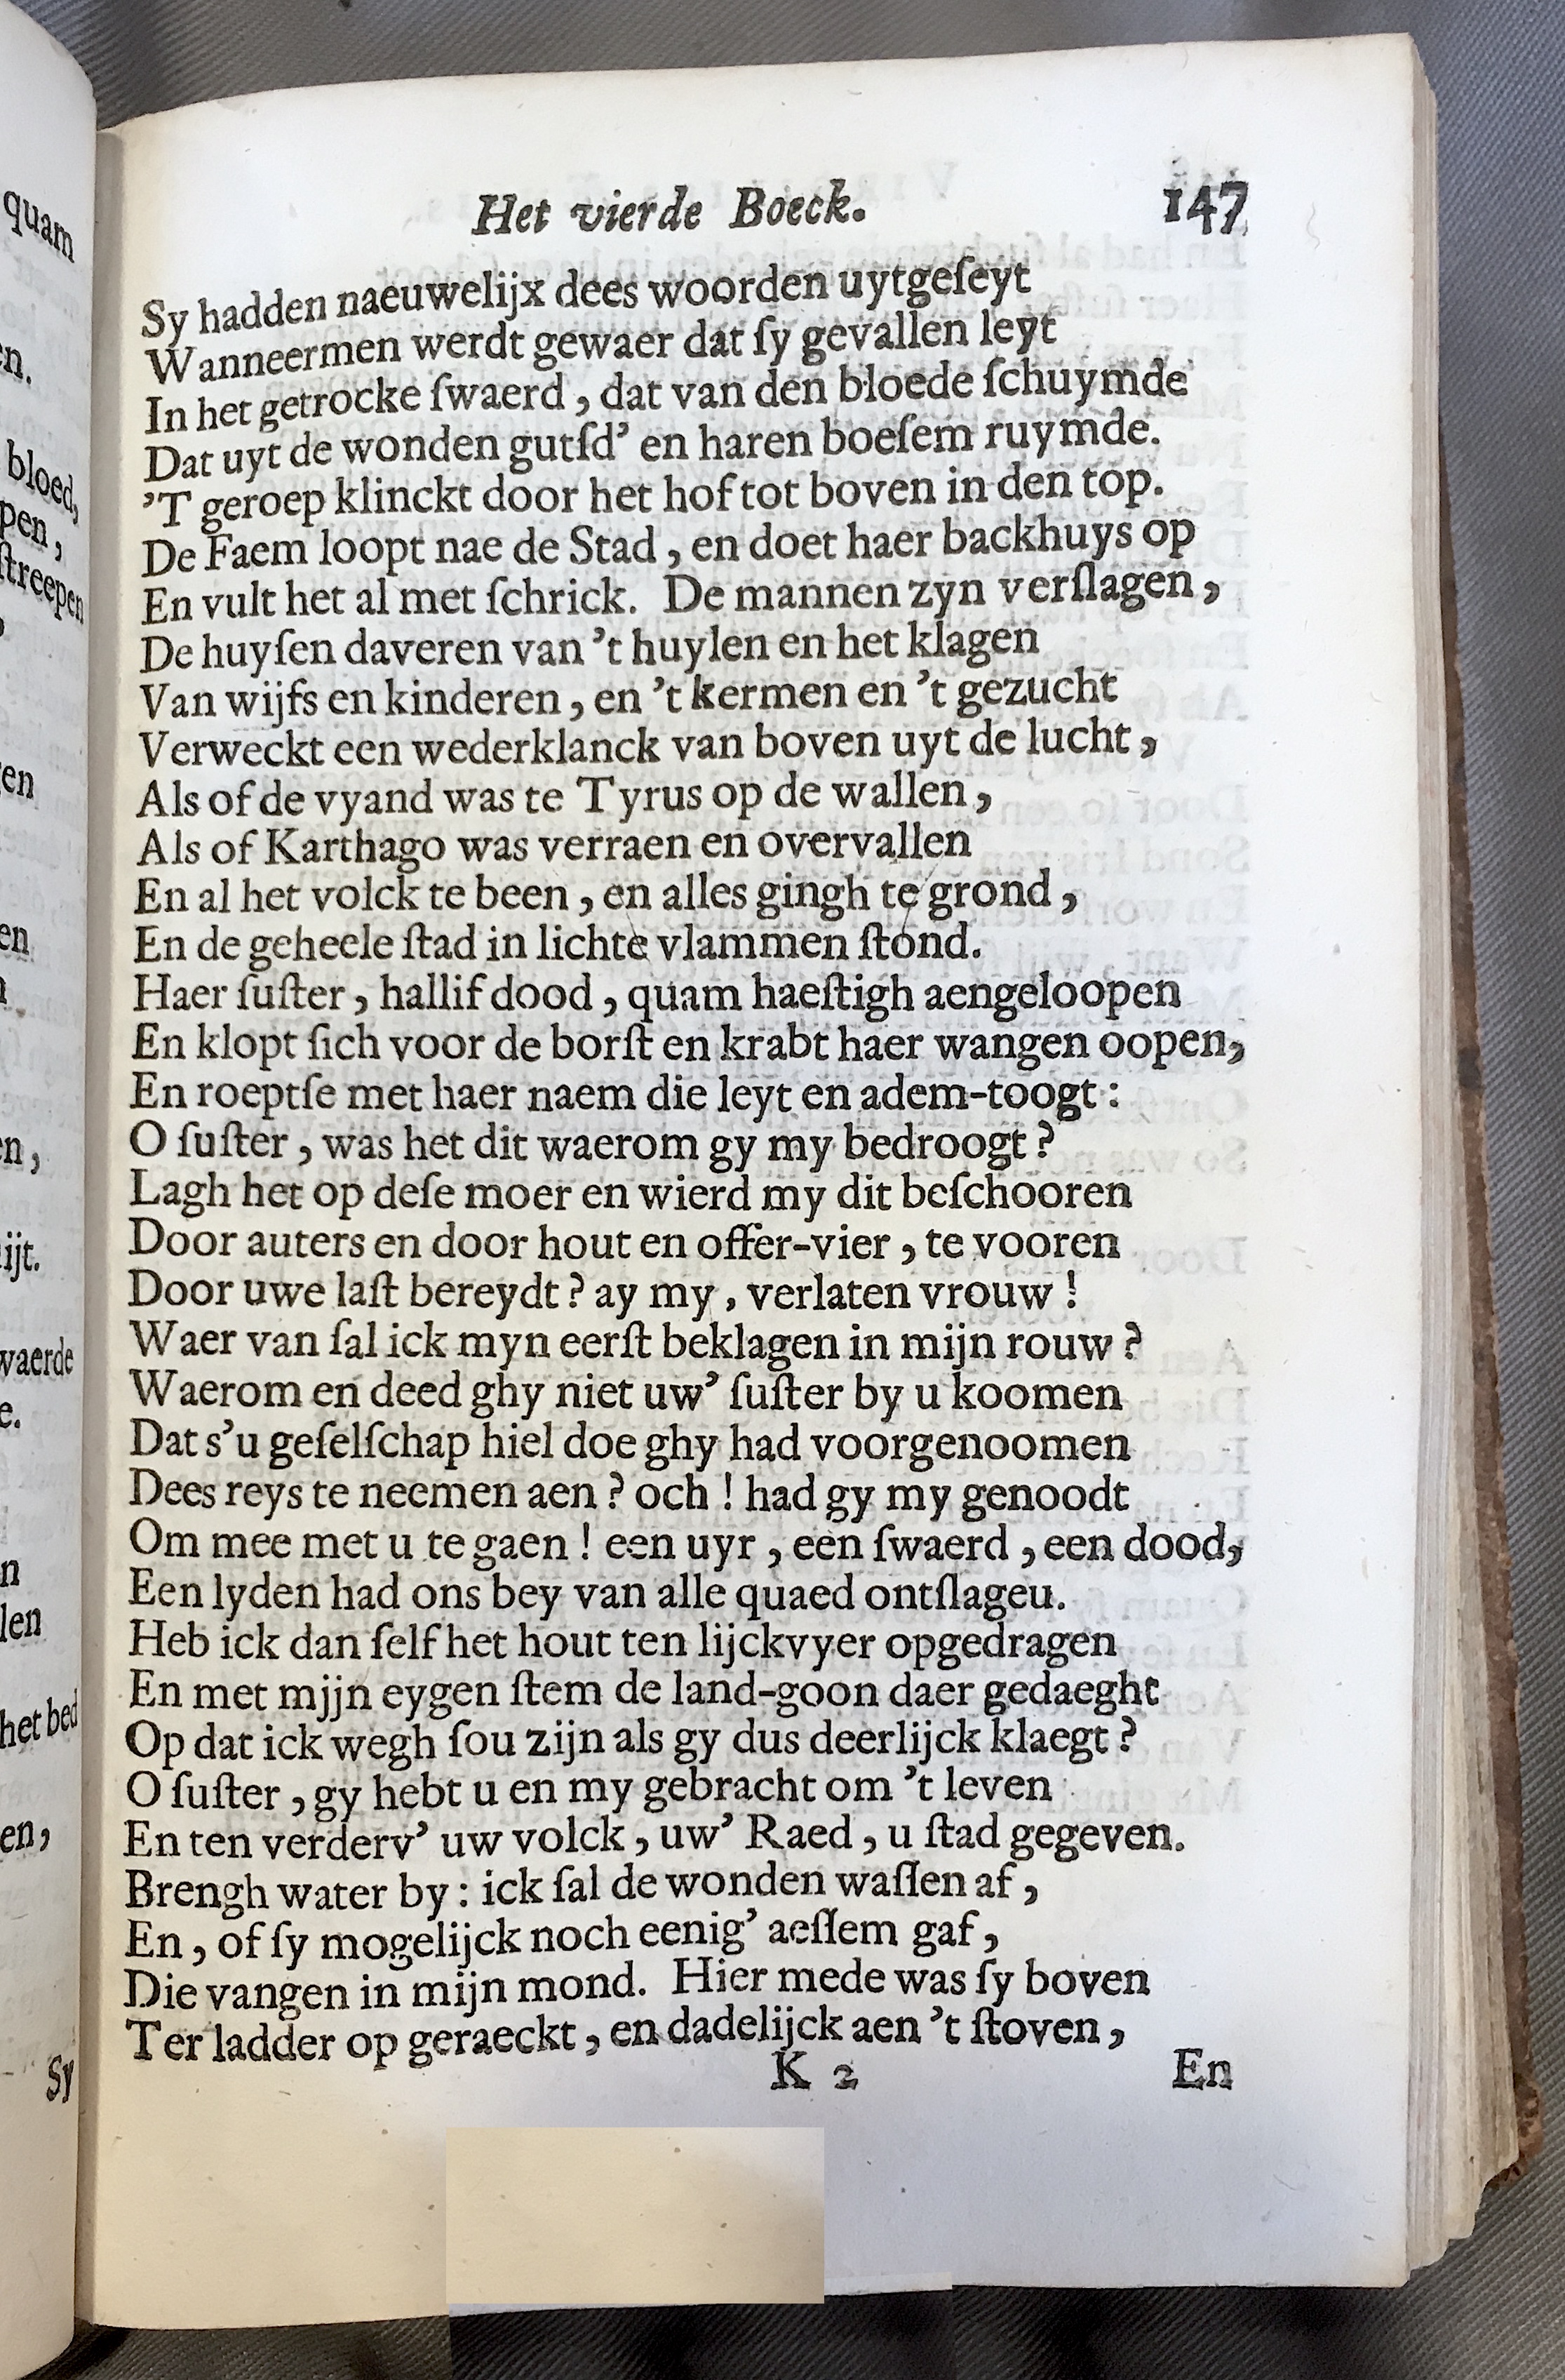 Het vierde Boeck. 147
Sy hadden naeuwelijx dees woorden uytgeſeyt
Wanneermen werdt gewaer dat ſy gevallen leyt
In het getrocke ſwaerd , dat van den bloede ſchuymde
Dat uyt de wonden gutſd’ en haren boeſem ruymde.
’T geroep klinckt door het hof tot boven in den top.
De Faem loopt nae de Stad , en doet haer backhuys op
En vult het al met ſchrick. De mannen zyn verſlagen ,
De huyſen daveren van ’t huylen en het klagen
Van wijfs en kinderen , en ’t kermen en ’t gezucht
Verweckt een wederklanck van boven uyt de lucht ,
Als of de vyand was te Tyrus op de wallen ,
Als of Karthago was verraen en overvallen
En al het volck te been , en alles gingh te grond ,
En de geheele ſtad in lichte vlammen ſtond.
Haer ſuſter , hallif dood , quam haeſtigh aengeloopen
En klopt ſich voor de borſt en krabt haer wangen oopen,
En roeptſe met haer naem die leyt en adem-toogt :
O ſuſter , was het dit waerom gy my bedroogt ?
Lagh het op deſe moer en wierd my dit beſchooren
Door auters en door hout en offer-vier , te vooren
Door uwe laſt bereydt ? ay my , verlaten vrouw !
Waer van ſal ick myn eerſt beklagen in mijn rouw ?
Waerom en deed ghy niet uw’ ſuſter by u koomen
Dat s’u geſelſchap hiel doe ghy had voorgenoomen
Dees reys te neemen aen ? och ! had gy my genoodt
Om mee met u te gaen ! een uyr , een ſwaerd , een dood,
Een lyden had ons bey van alle quaed ontſlageu.
Heb ick dan ſelf het hout ten lijckvyer opgedragen
En met mjjn eygen ſtem de land-goon daer gedaeght
Op dat ick wegh ſou zijn als gy dus deerlijck klaegt ?
O ſuſter , gy hebt u en my gebracht om ’t leven
En ten verderv’ uw volck , uw’ Raed , u ſtad gegeven.
Brengh water by : ick ſal de wonden waſſen af ,
En , of ſy mogelijck noch eenig’ aeſſem gaf ,
Die vangen in mijn mond. Hier mede was ſy boven
Ter ladder op geraeckt , en dadelijck aen ’t ſtoven ,
K 2 En